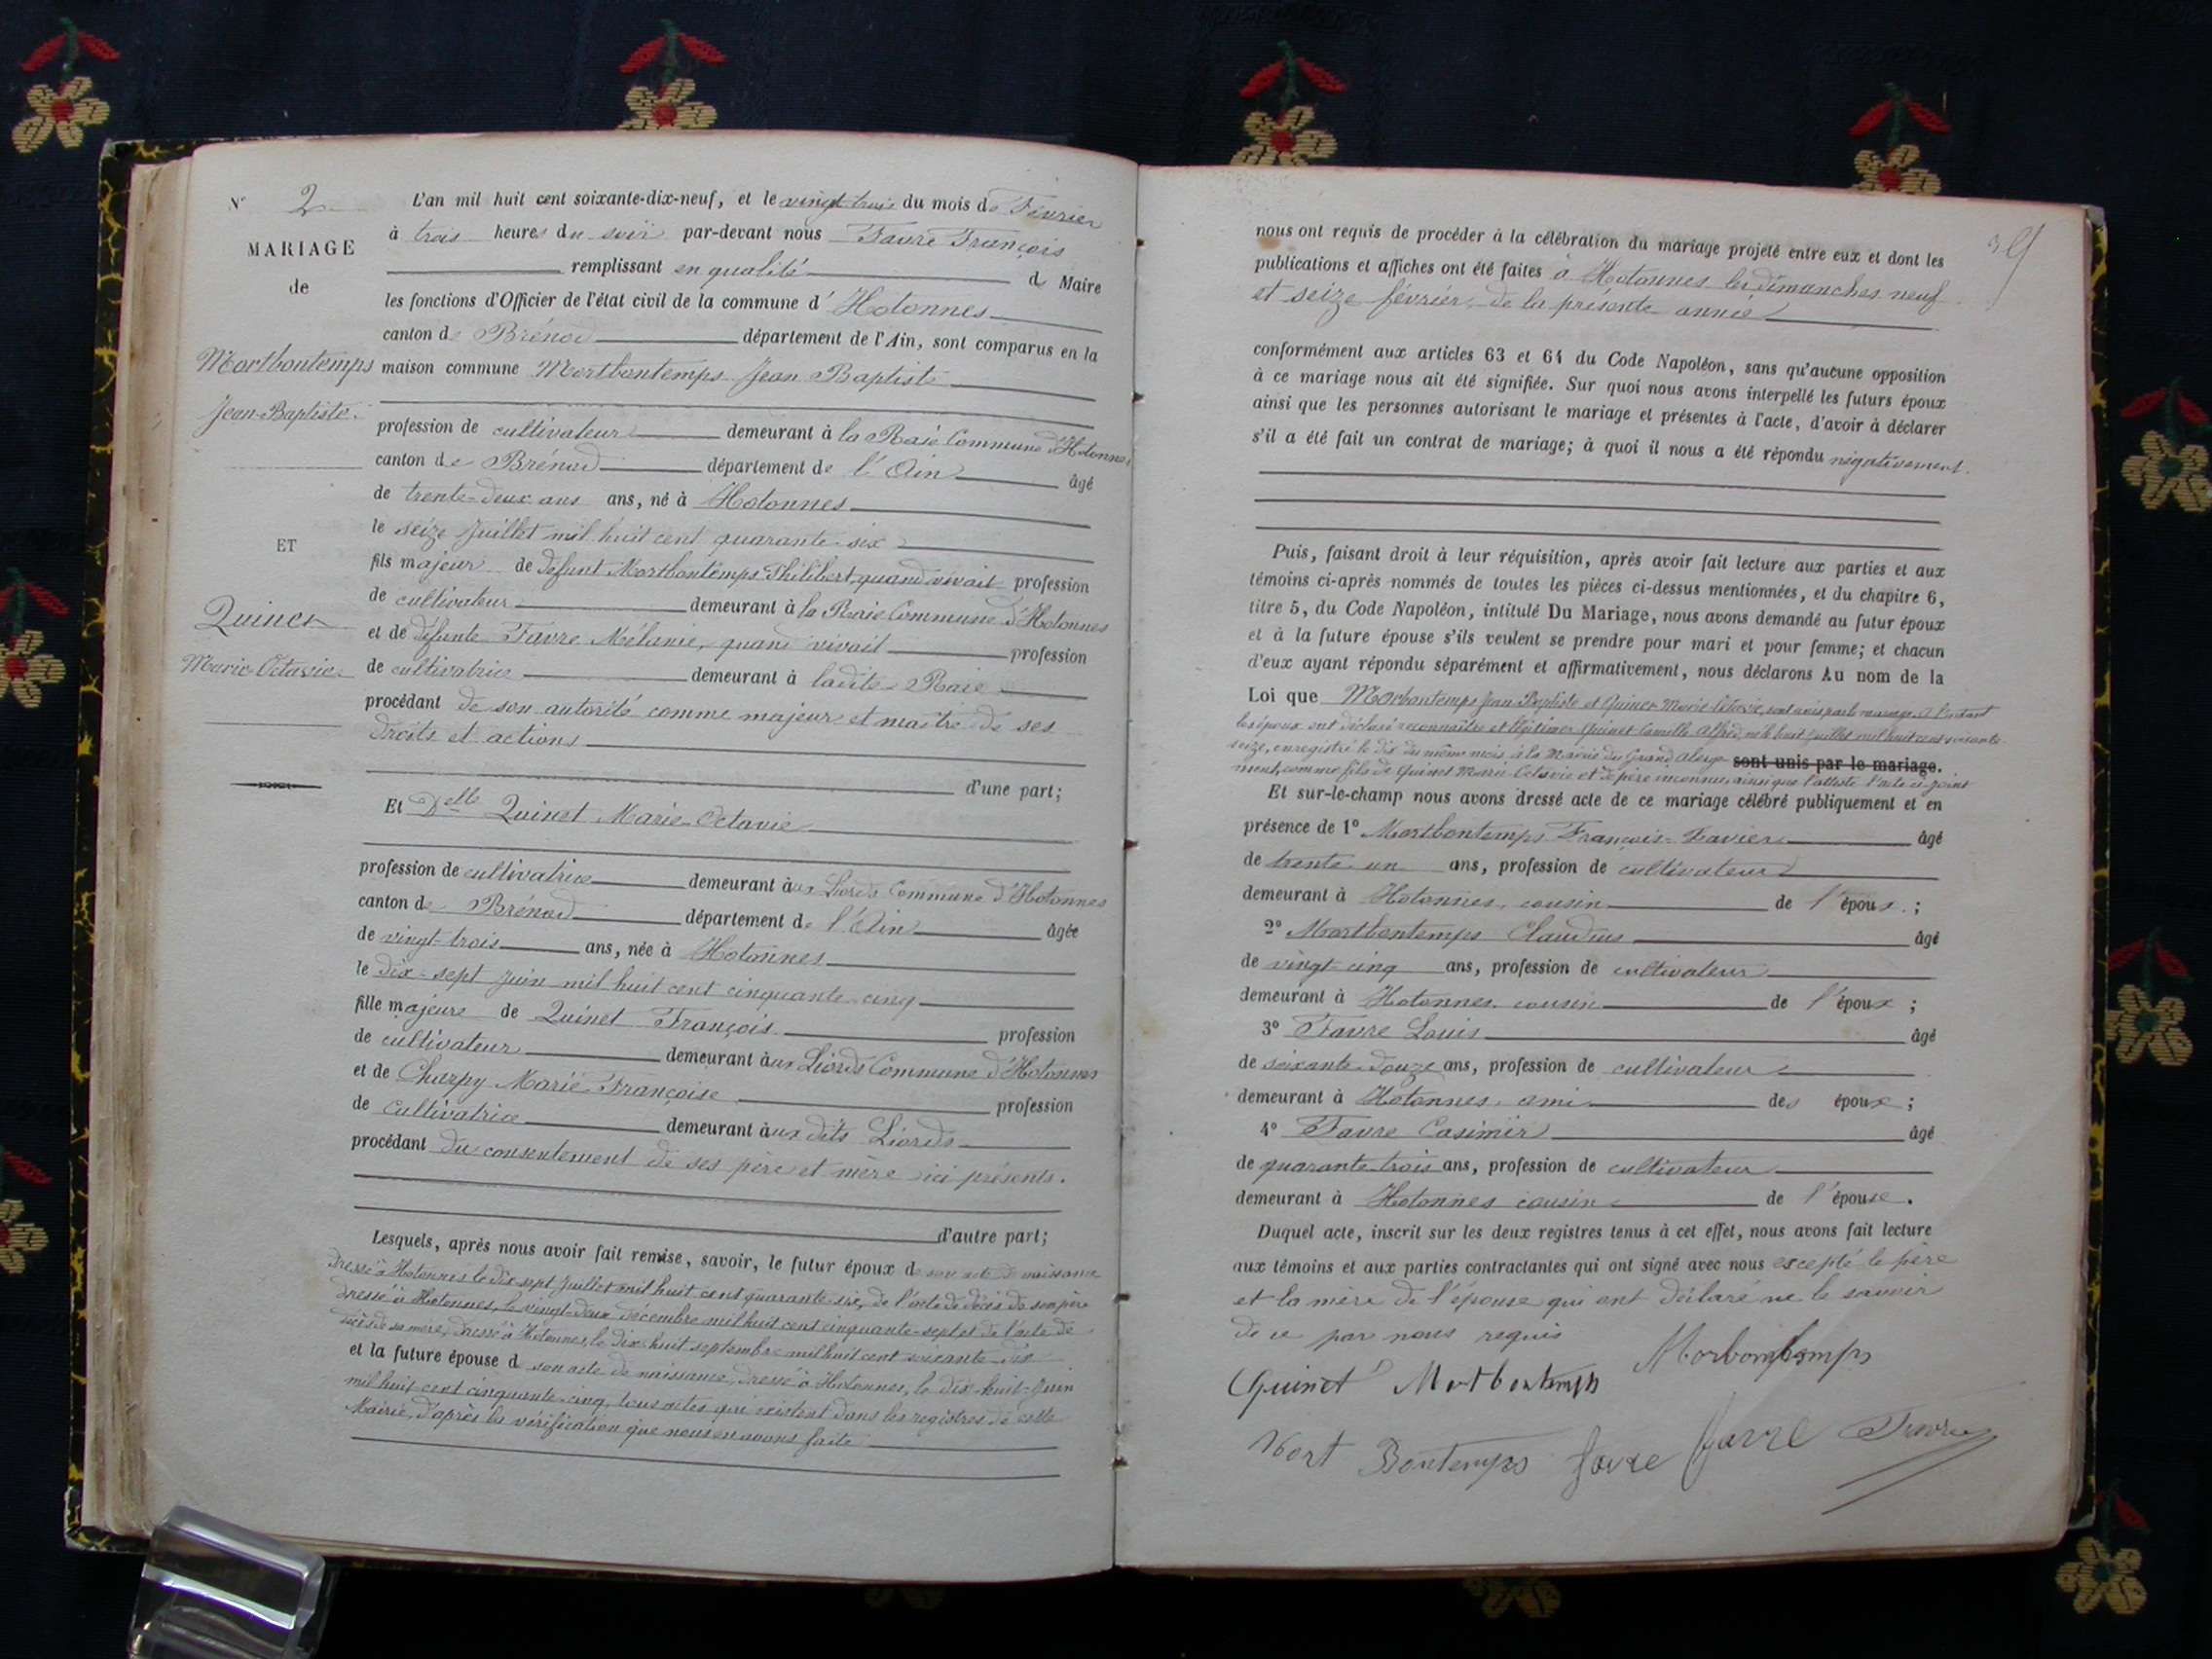 N° 2
MARIAGE
de
Mortbontemps
Jean-Baptiste.
ET
Quinet
Marie Octavie
L'an mil huit cent soixante-dix-neuf, et le vingt trois du mois de Février
à trois heures du soir par-devant nous Favre François
remplissant en qualité de Maire
les fonctions d'Officier de l'état civil de la commune d' Hotonnes
canton de Brénod département de l'Ain, sont comparus en la
maison commune Mortbontemps Jean Baptiste
profession de cultivateur demeurant à la Raie Commune d'Hotonnes
canton de Brénod département de l'Ain âgé
de trente-deux ans ans, né à Hotonnes
le seize Juillet mil huit cent quarante-six
fils majeur de défunt Mortbontemps Philibert, quand vivait profession
de cultivateur demeurant à la Raie Commune d'Hotonnes
et de défunte Favre Mélanie, quand vivait profession
de cultivatrice demeurant à ladite Raie
procédant de son autorité comme majeur et maître de ses
droits et actions
d'une part;
Et Delle Quinet Marie-Octavie
profession de cultivatrice demeurant aux Liords Commune d'Hotonnes
canton de Brénod département de l'Ain âgée
de vingt-trois ans, née à Hotonnes
le dix-sept Juin mil huit cent cinquante-cinq
fille majeure de Quinet François profession
de cultivateur demeurant aux Liords Commune d'Hotonnes
et de Charpy Marie Françoise profession
de cultivatrice demeurant aux dits Liords
procédant du consentement de ses père et mère ici présents.
d'autre part;
Lesquels, après nous avoir fait remise, savoir, le futur époux de son acte de naissance
dressé à Hotonnes le dix sept Juillet mil huit cent quarante six, de l'acte de décès de son père
dressé à Hotonnes, le vingt-deux décembre mil huit cent cinquante-sept et de l'acte de
décès de sa mère, dressé à Hotonnes, le dix-huit septembre mil huit cent soixante-dix
et la future épouse de son acte de naissance, dressé à Hotonnes, le dix-huit Juin
mil huit cent cinquante-cinq, tous actes qui existent dans les registres de cette
Mairie, d'après la vérification que nous en avons faite
nous ont requis de procéder à la célébration du mariage projeté entre eux et dont les
publications et affiches ont été faites à Hotonnes les dimanches neuf
et seize février de la présente année
conformément aux articles 63 et 64 du Code Napoléon, sans qu'aucune opposition
à ce mariage nous ait été signifiée. Sur quoi nous avons interpellé les futurs époux
ainsi que les personnes autorisant le mariage et présentes à l'acte, d'avoir à déclarer
s'il a été fait un contrat de mariage; à quoi il nous a été répondu négativement.
Puis, faisant droit à leur réquisition, après avoir fait lecture aux parties et aux
témoins ci-après nommés de toutes les pièces ci-dessus mentionnées, et du chapitre 6,
titre 5, du Code Napoléon, intitulé Du Mariage, nous avons demandé au futur époux
et à la future épouse s'ils veulent se prendre pour mari et pour femme; et chacun
d'eux ayant répondu séparément et affirmativement, nous déclarons Au nom de la
Loi que Mortbontemps Jean Baptiste et Quinet Marie Octavie, sont unis par le mariage. A l'instant
les époux ont déclaré reconnaître et légitimer Quinet Camille Alfred, né le huit Juillet mil huit cent soixante-
seize, enregistré le dix du même mois à la Mairie du Grand Abergement sont unis par le mariage.
ment, comme fils de Quinet Marie Octavie et de père inconnu, ainsi que l'atteste l'acte ci-joint
Et sur-le-champ nous avons dressé acte de ce mariage célébré publiquement et en
présence de 1° Mortbontemps François-Xavier âgé
de trente un ans, profession de cultivateur
demeurant à Hotonnes, cousin de l'époux ;
2° Mortbontemps Claudius âgé
de vingt cinq ans, profession de cultivateur
demeurant à Hotonnes, cousin de l'époux ;
3° Favre Louis âgé
de soixante douze ans, profession de cultivateur
demeurant à Hotonnes, ami des époux ;
4° Favre Casimir âgé
de quarante trois ans, profession de cultivateur
demeurant à Hotonnes cousin de l'épouse.
Duquel acte, inscrit sur les deux registres tenus à cet effet, nous avons fait lecture
aux témoins et aux parties contractantes qui ont signé avec nous excepté le père
et la mère de l'épouse qui ont déclaré ne le savoir
de ce par nous requis
Quinet Mortbontemps Morbontemps
Mort Bontemps favre favre Favre